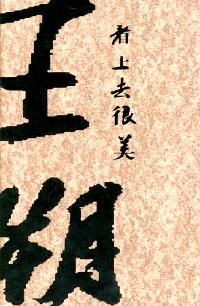 看上去很美
王朔